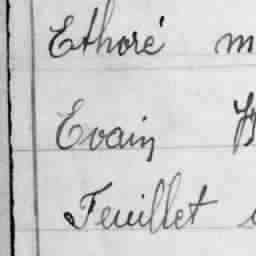 Ethoré m
Evain
Feuillet